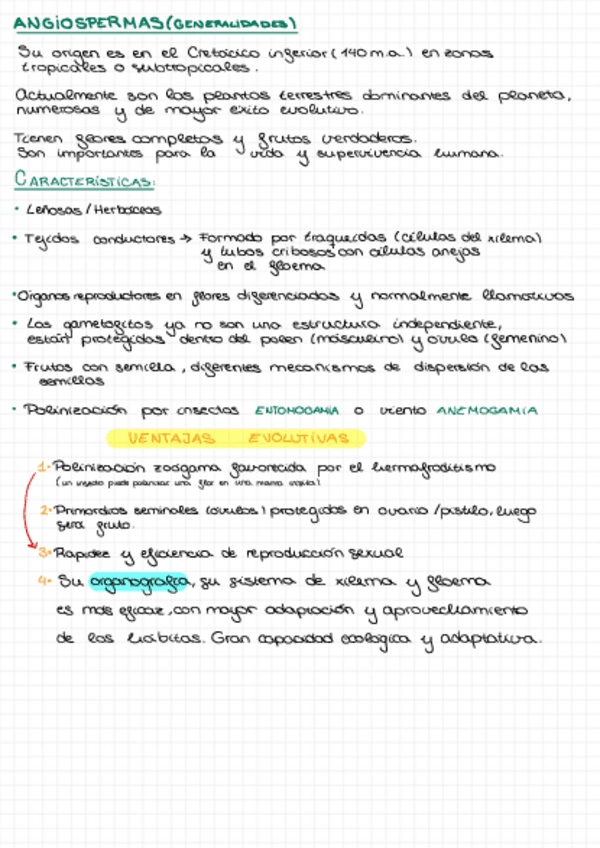 ANGIOSPERMAS (GENERALIDADES)
Su origen es en el Cretácico inferior (140 m.a.) en zonas
tropicales o subtropicales.
Actualmente son las plantas terrestres dominantes del planeta,
numerosas y de mayor éxito evolutivo.
Tienen flores completas y frutos verdaderos.
Son importantes para la vida y supervivencia humana.
CARACTERÍSTICAS:
• Leñosas / Herbáceas
• Tejidos conductores → Formado por traqueidas (células del xilema)
y tubos cribosos con células anejas
en el floema
• Órganos reproductores en flores diferenciadas y normalmente llamativas
• Los gametofitos ya no son una estructura independiente,
están protegidas dentro del polen (masculino) y óvulo (femenino)
• Frutos con semilla, diferentes mecanismos de dispersión de las
semillas
• Polinización por insectos ENTOMOGAMIA o viento ANEMOGAMIA
VENTAJAS EVOLUTIVAS
1• Polinización zoógama favorecida por el hermafroditismo
(un insecto puede polinizar una flor en una misma visita)
2• Primordios seminales (óvulos) protegidos en ovario / pistilo, luego
será fruto.
3• Rapidez y eficiencia de reproducción sexual
4• Su organografía, su sistema de xilema y floema
es más eficaz, con mayor adaptación y aprovechamiento
de los hábitas. Gran capacidad ecológica y adaptativa.